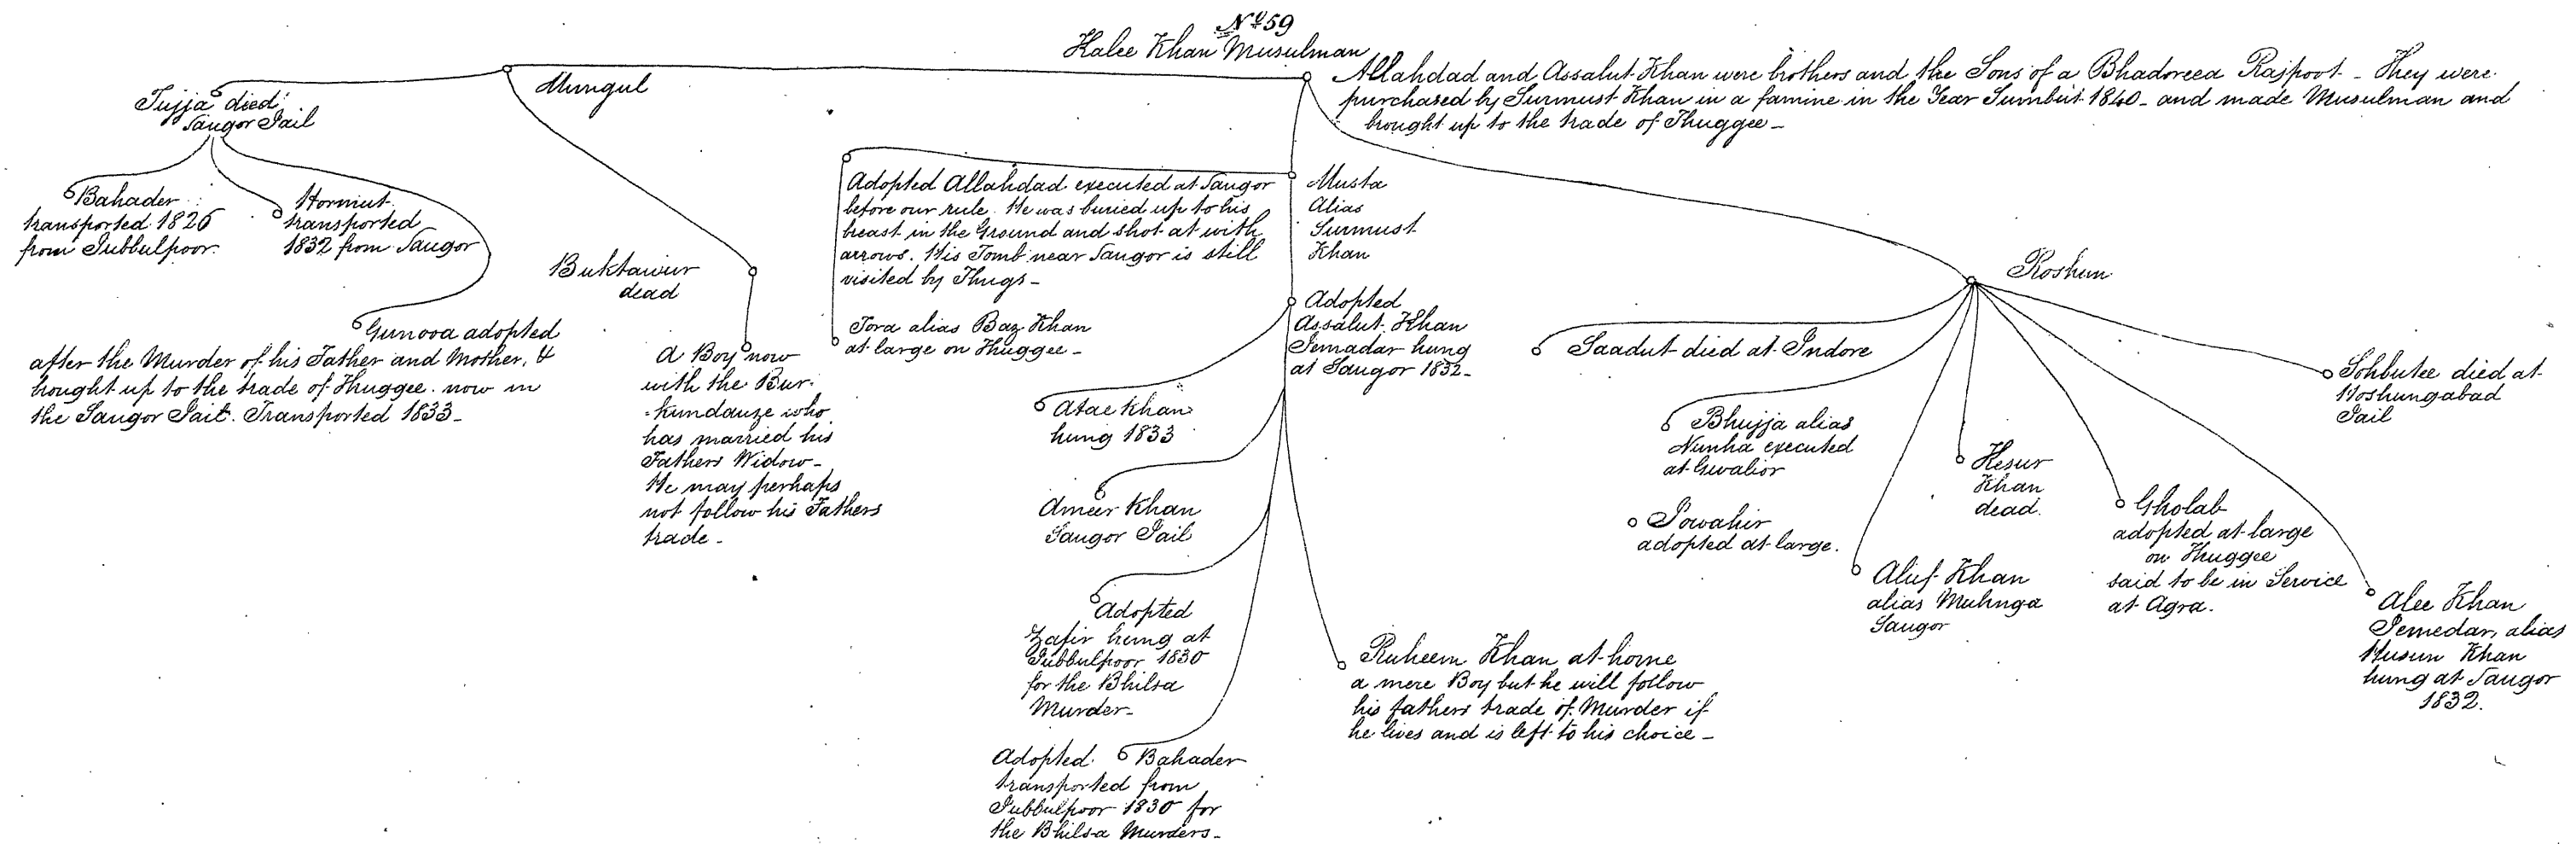 No. 59
Halee Khan Musulman
Allahdad and Assalut Khan were brothers and the Sons of a Bhadoreea Rajpoot - They were
purchased by Surmust Khan in a famine in the Year Sumbut 1840 - and made Musulman and
brought up to the trade of Thuggee -
Mungul
Jujja died
Saugor Jail
Bahader
transported 1826
from Jubbulpoor.
Hormut
transported
1832 from Saugor
Gunooa adopted
after the Murder of his Father and Mother, &
brought up to the trade of Thuggee. now in
the Saugor Jail. Transported 1833 -
Buktawur
dead
A Boy now
with the Bur-
-kundauze who
has married his
Fathers Widow -
He may perhaps
not follow his Fathers
trade -
Adopted Allahdad executed at Saugor
before our rule. He was buried up to his
breast in the Ground and shot at with
arrows. His Tomb near Saugor is still
visited by Thugs -
Jora alias Baz Khan
at large on Thuggee -
Musta
Alias
Surmust
Khan
Adopted
Assalut Khan
Jemadar hung
at Saugor 1832 -
Atae Khan
hung 1833
Ameer Khan
Saugor Jail
Adopted
Zafir hung at
Jubbulpoor 1830
for the Bhilsa
Murder -
Adopted. Bahader
transported from
Jubbulpoor 1830 for
the Bhilsa Murders -
Ruheem Khan at home
a mere Boy but he will follow
his fathers trade of Murder if
he lives and is left to his choice -
Roshun
Saadut died at Indore
Bhujja alias
Nunha executed
at Gwalior
Jowahir
adopted at large.
Aluf Khan
alias Muhnga
Saugor
Kesur
Khan
dead.
Gholab
adopted at large
on Thuggee
said to be in Service
at Agra.
Alee Khan
Jemedar, alias
Husun Khan
hung at Saugor
1832.
Sohbutee died at
Hoshungabad
Jail